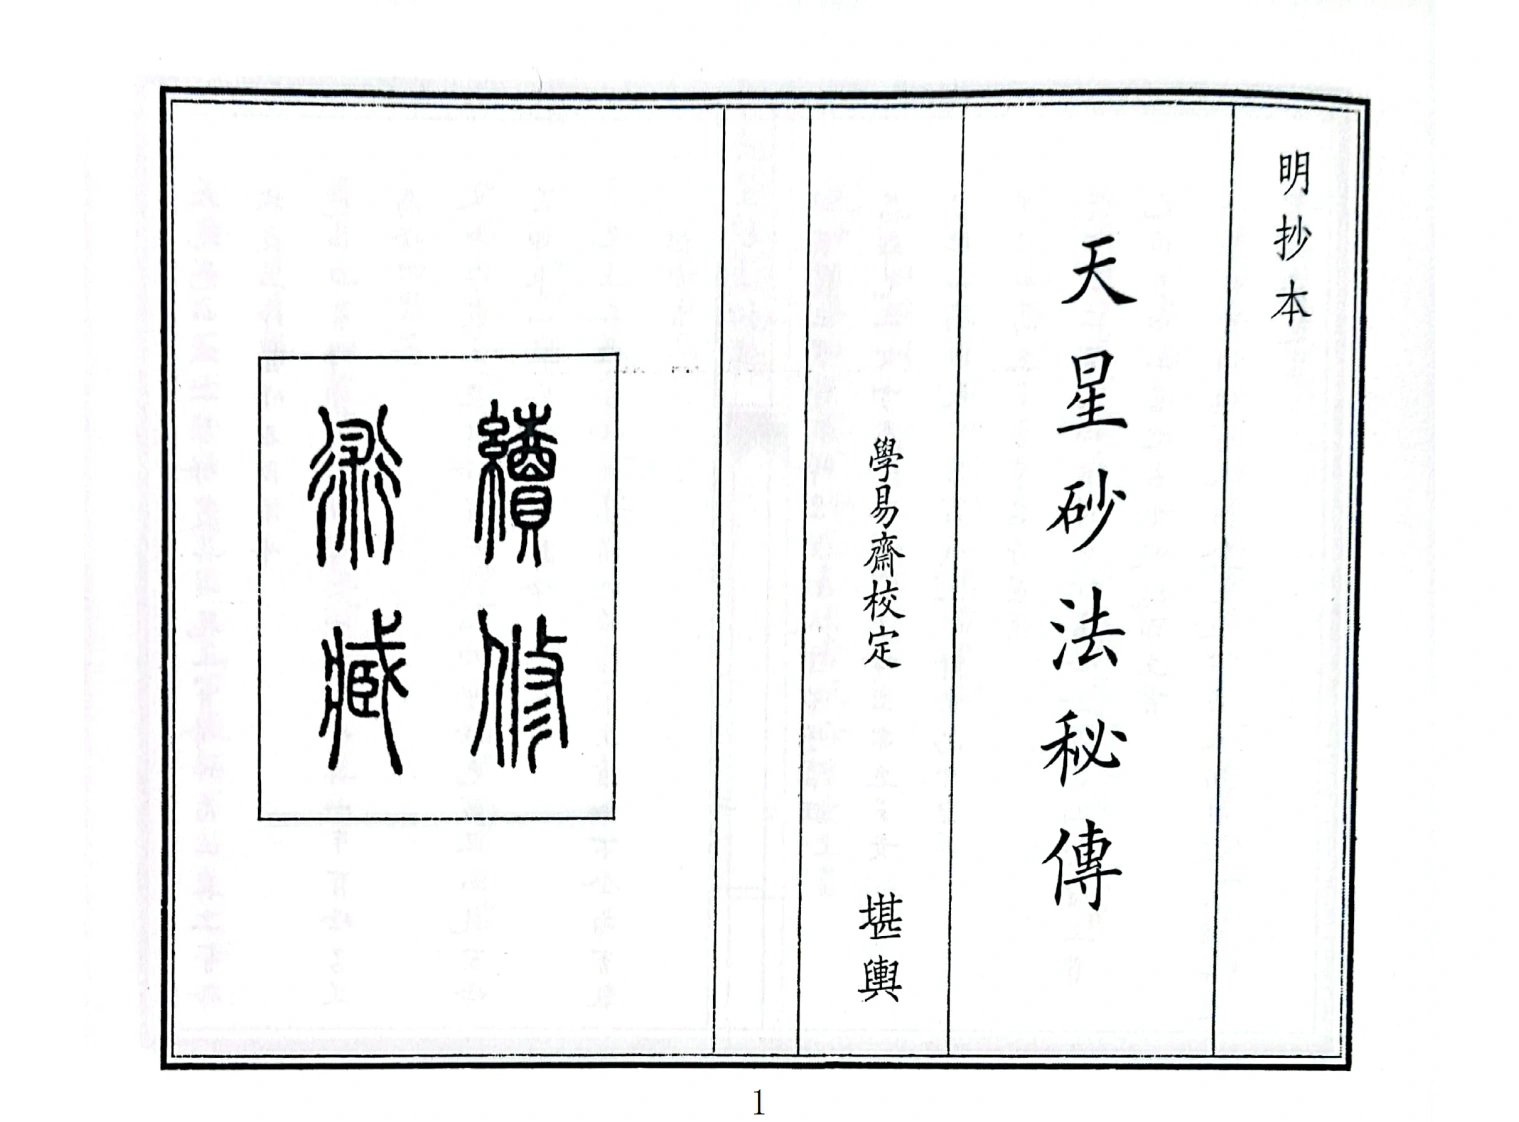 明抄本
天星砂法秘傳
學易齋校定 堪輿
續修
術藏
1